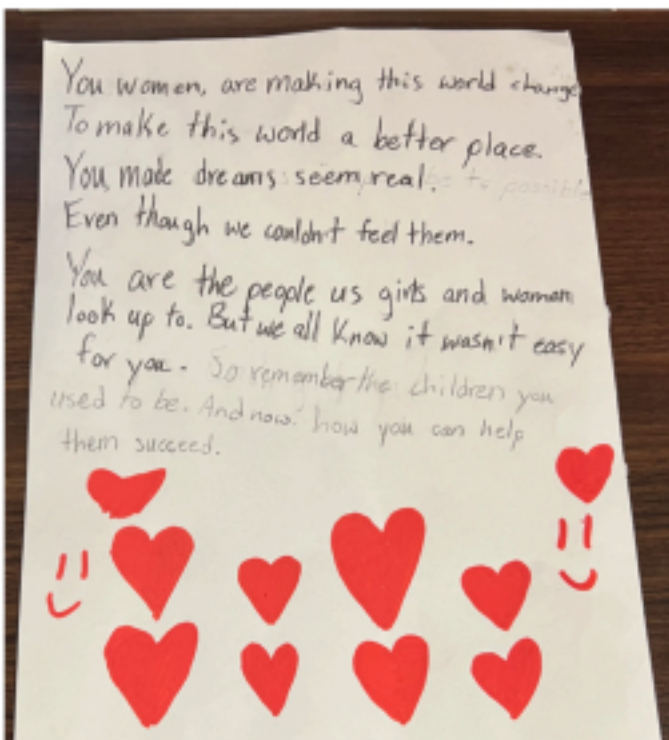 You women, are making this world change
To make this world a better place.
You made dreams seem real. be to possible
Even though we couldn't feel them.
You are the people us girls and women
look up to. But we all know it wasn't easy
for you. So remember the children you
used to be. And now: how you can help
them succeed.